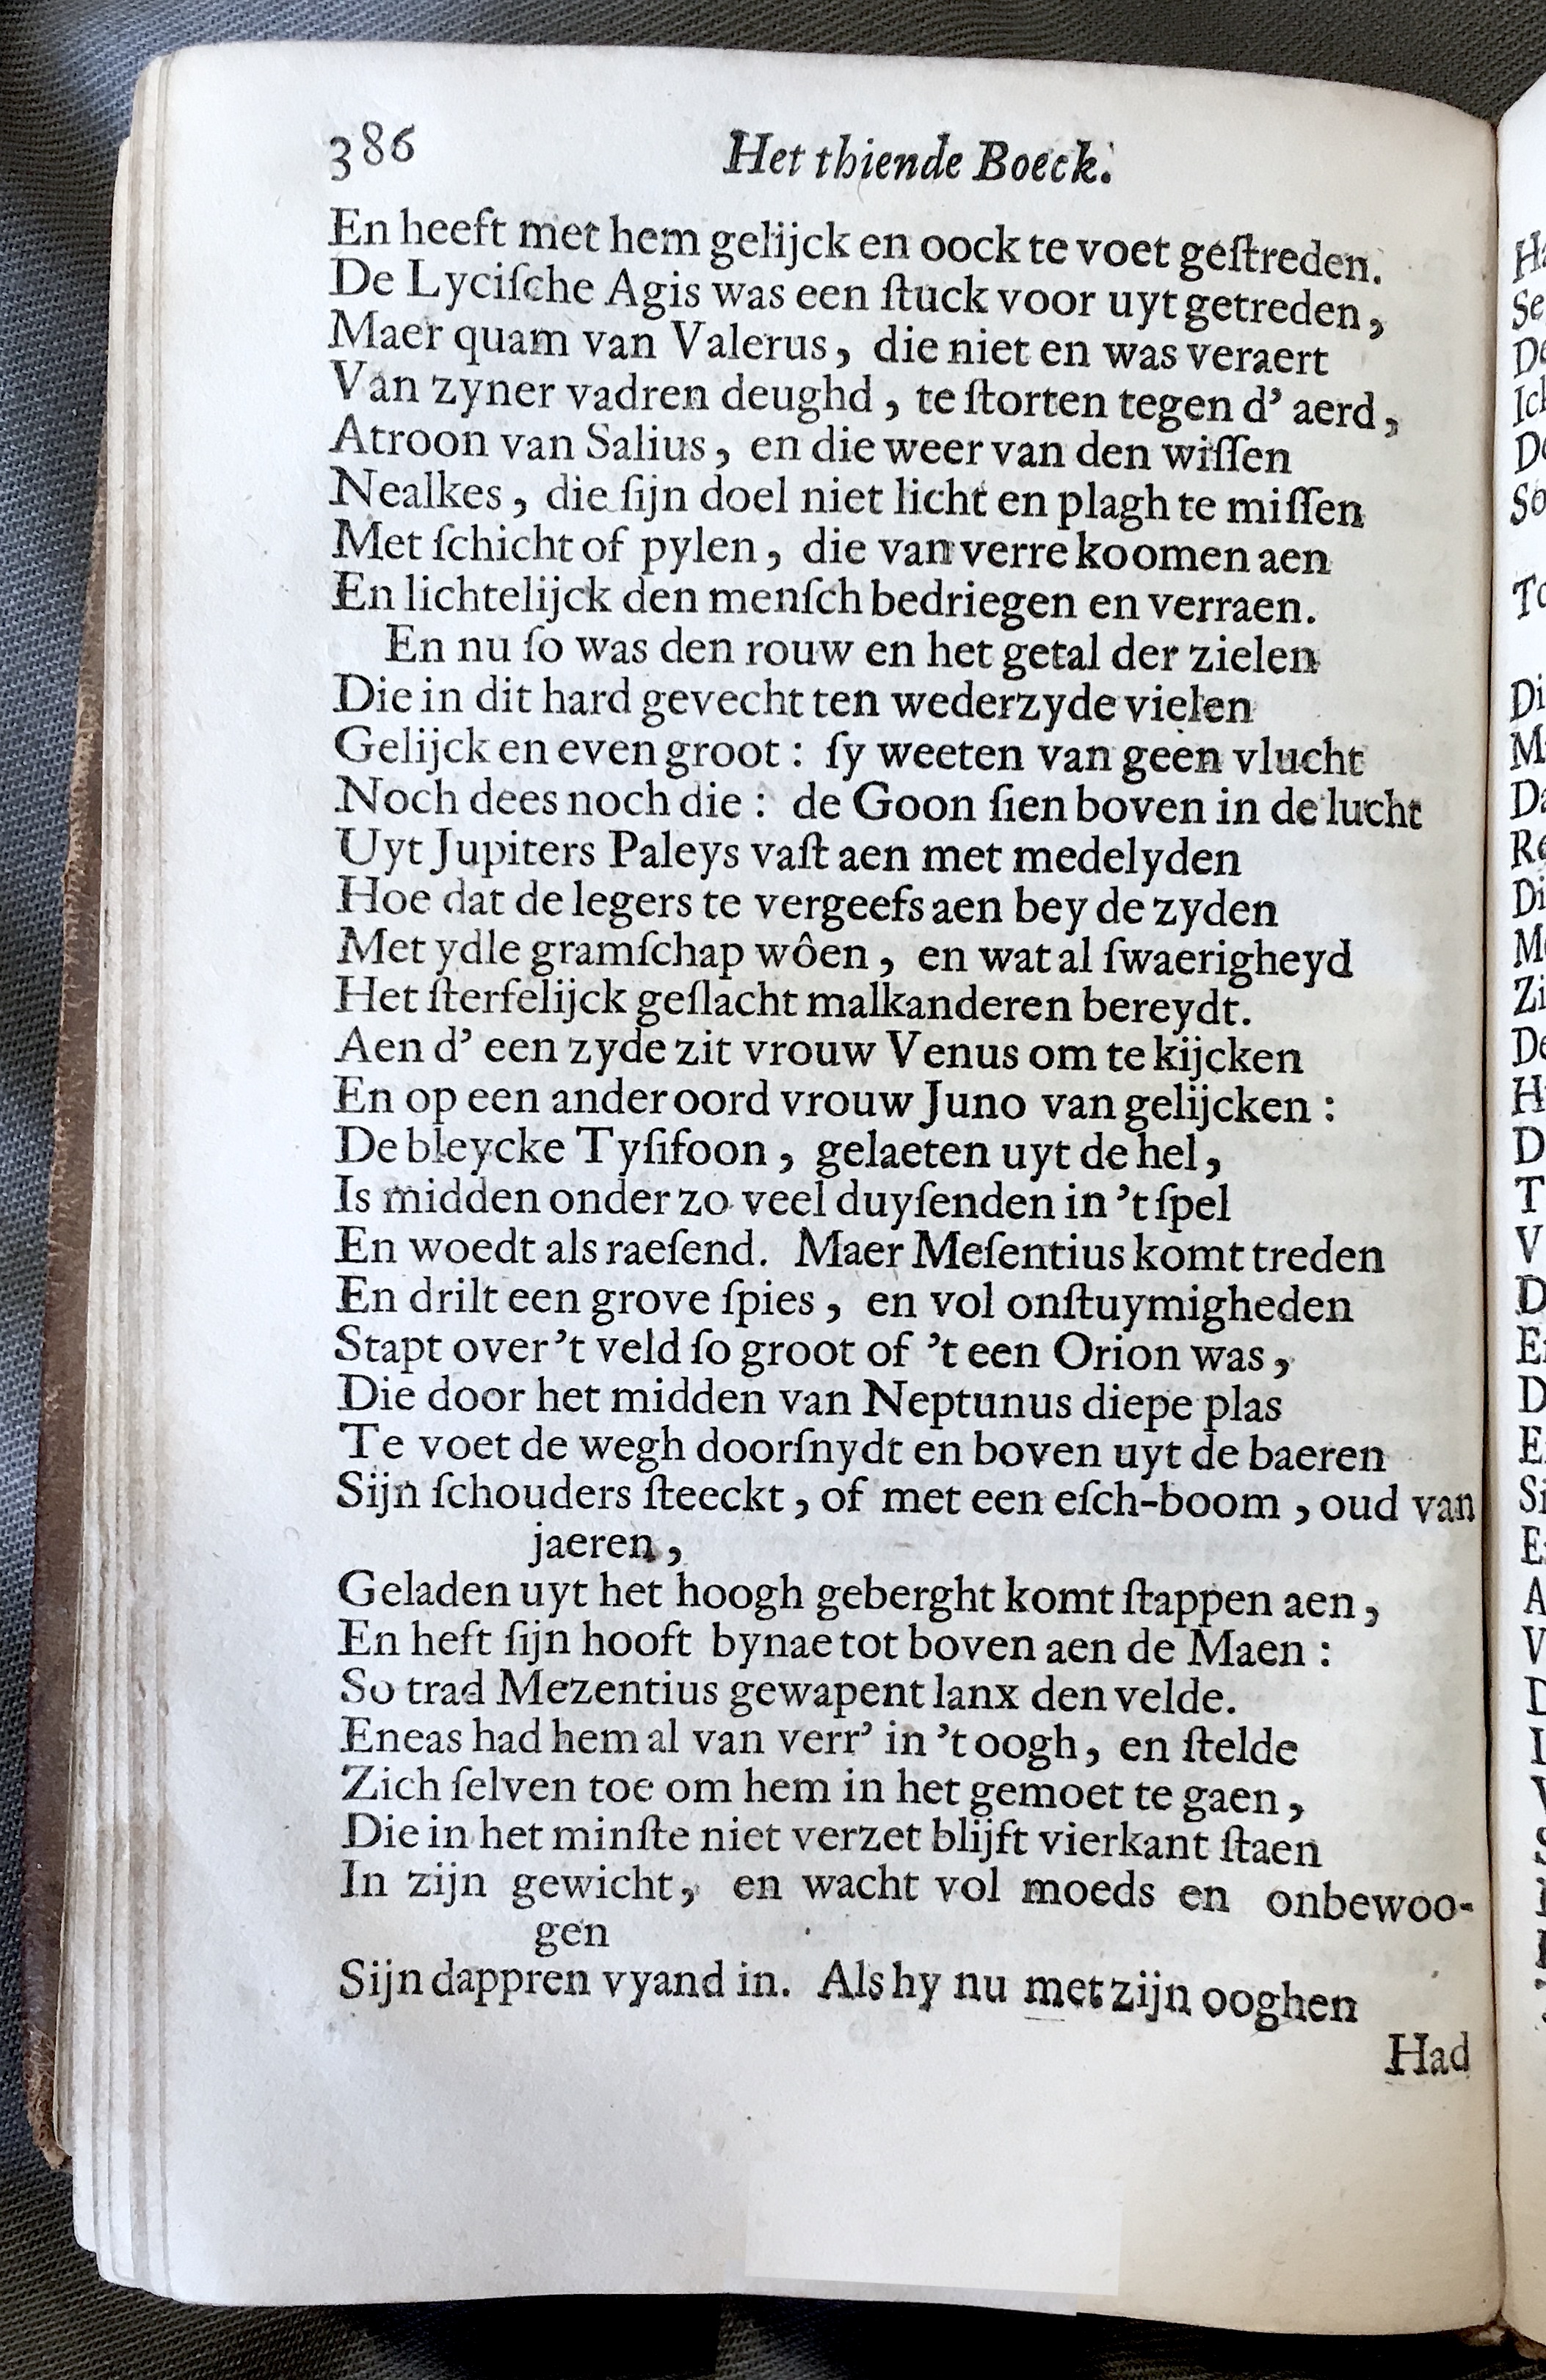 386 Het thiende Boeck.
En heeft met hem gelijck en oock te voet geſtreden.
De Lyciſche Agis was een ſtuck voor uyt getreden,
Maer quam van Valerus, die niet en was veraert
Van zyner vadren deughd, te ſtorten tegen d' aerd,
Atroon van Salius, en die weer van den wiſſen
Nealkes, die ſijn doel niet licht en plagh te miſſen
Met ſchicht of pylen, die van verre koomen aen
En lichtelijck den menſch bedriegen en verraen.
En nu ſo was den rouw en het getal der zielen
Die in dit hard gevecht ten wederzyde vielen
Gelijck en even groot: ſy weeten van geen vlucht
Noch dees noch die: de Goon ſien boven in de lucht
Uyt Jupiters Paleys vaſt aen met medelyden
Hoe dat de legers te vergeefs aen bey de zyden
Met ydle gramſchap wôen, en wat al ſwaerigheyd
Het ſterfelijck geſlacht malkanderen bereydt.
Aen d' een zyde zit vrouw Venus om te kijcken
En op een ander oord vrouw Juno van gelijcken:
De bleycke Tyſifoon, gelaeten uyt de hel,
Is midden onder zo veel duyſenden in 't ſpel
En woedt als raeſend. Maer Meſentius komt treden
En drilt een grove ſpies, en vol onſtuymigheden
Stapt over 't veld ſo groot of 't een Orion was,
Die door het midden van Neptunus diepe plas
Te voet de wegh doorſnydt en boven uyt de baeren
Sijn ſchouders ſteeckt, of met een eſch-boom, oud van
jaeren,
Geladen uyt het hoogh geberght komt ſtappen aen,
En heft ſijn hooft bynae tot boven aen de Maen:
So trad Mezentius gewapent lanx den velde.
Eneas had hem al van verr' in 't oogh, en ſtelde
Zich ſelven toe om hem in het gemoet te gaen,
Die in het minſte niet verzet blijft vierkant ſtaen
In zijn gewicht, en wacht vol moeds en onbewoo-
gen
Sijn dappren vyand in. Als hy nu met zijn ooghen
Had